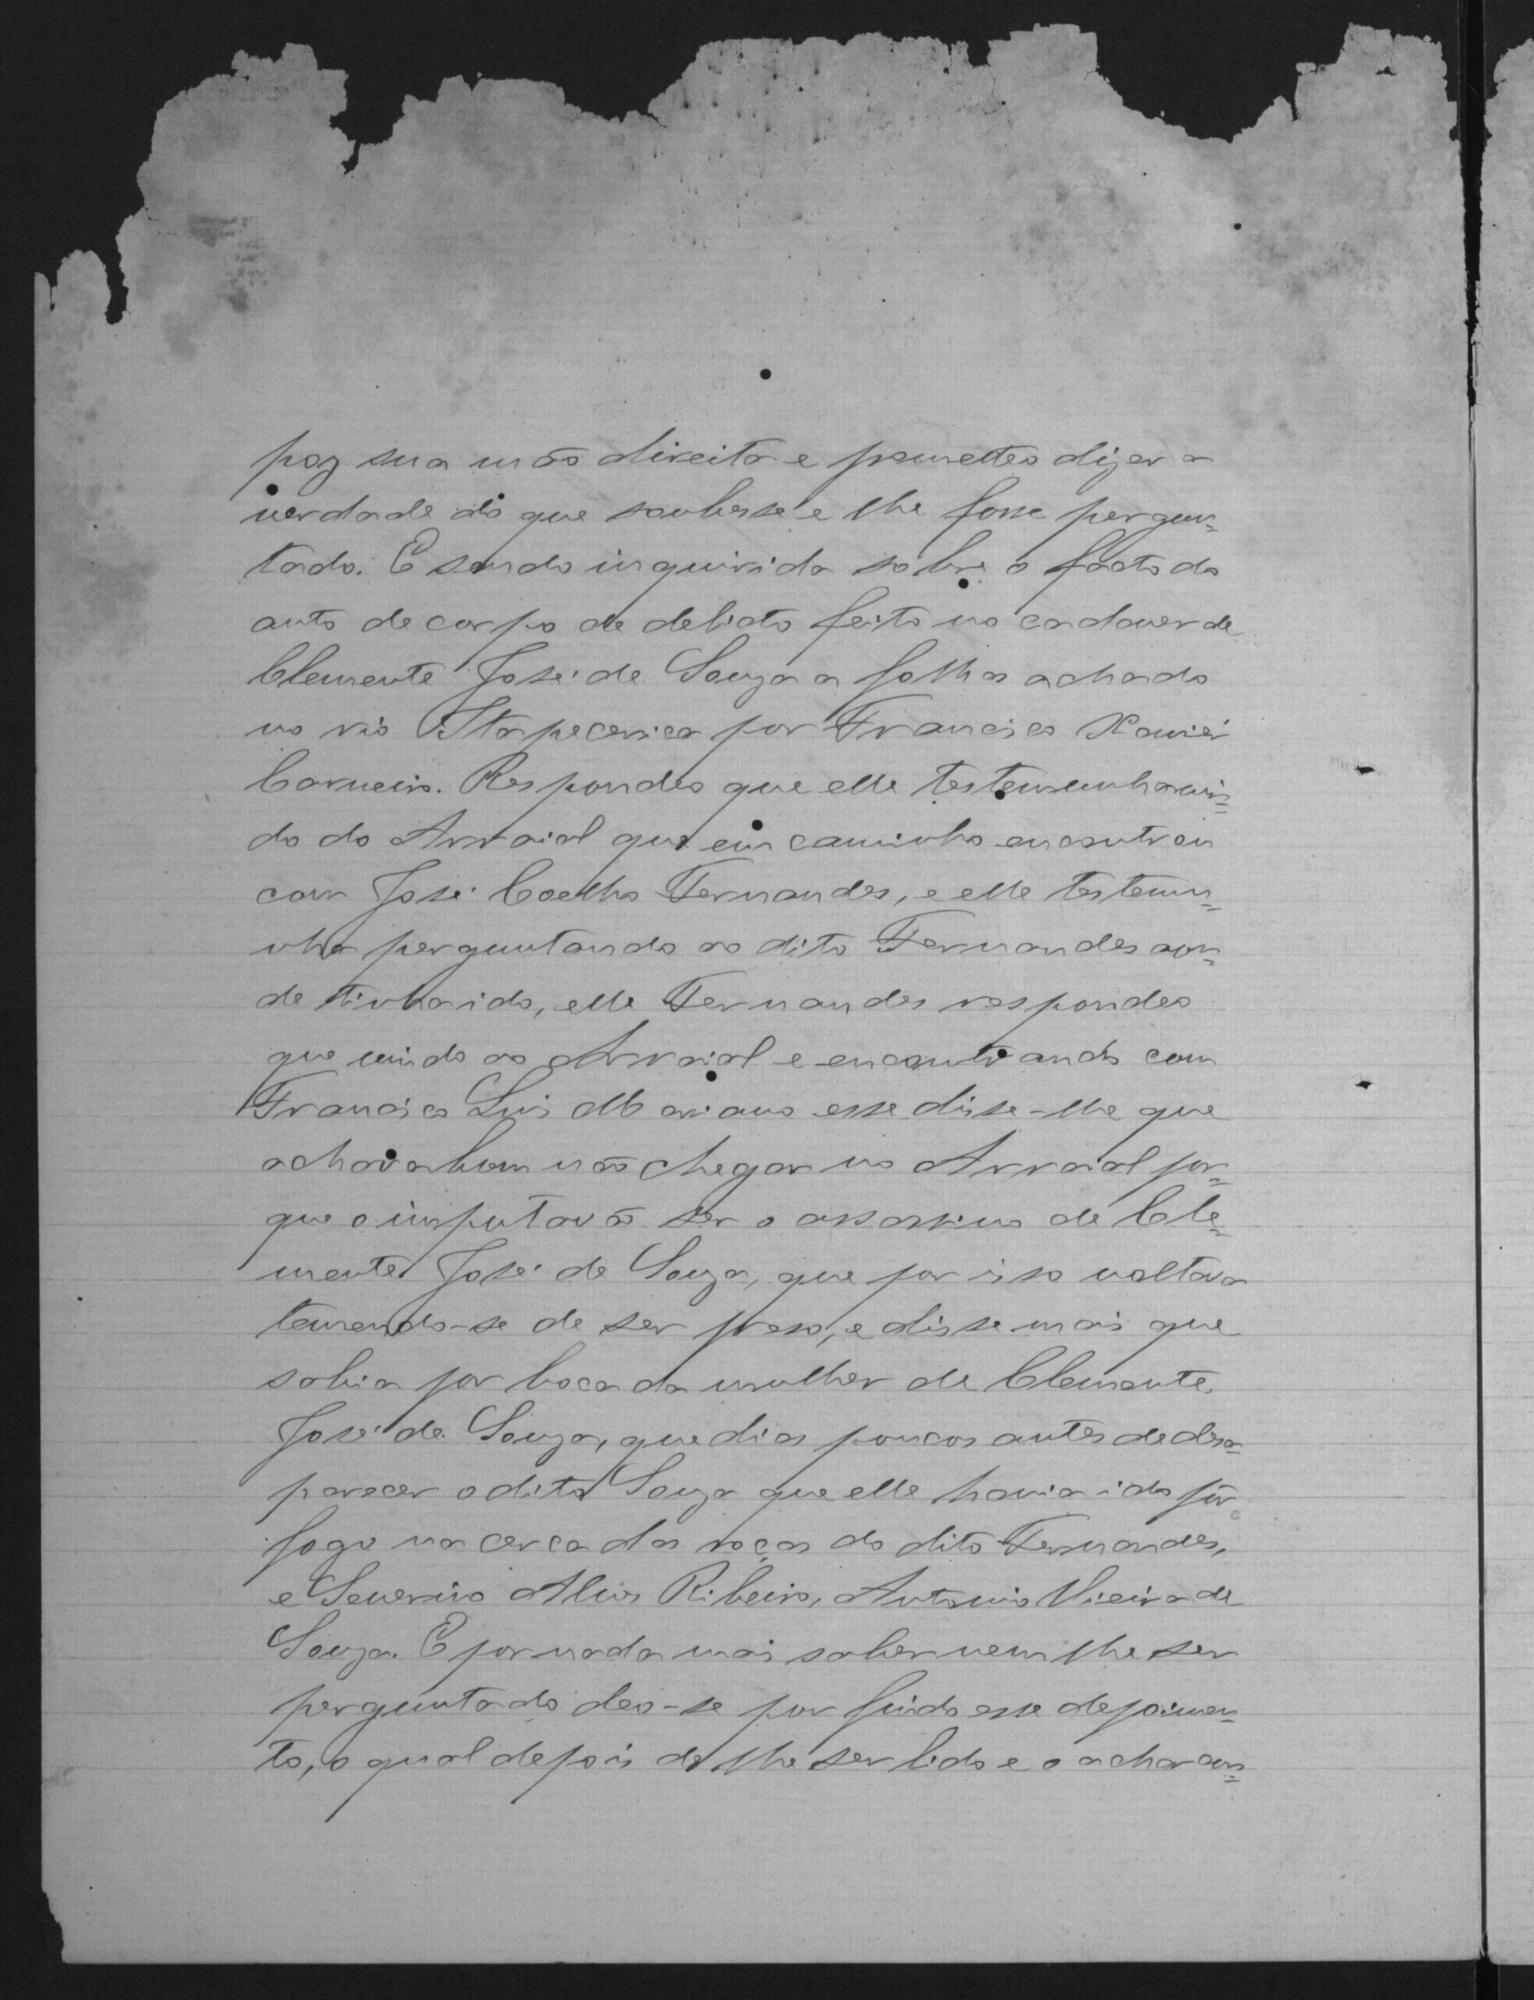 poz sua mão direita e prometteo dizer a
verdade do que soubesse e lhe fosse pergun=
tado. E sendo inquirida sobre o facto do
auto de corpo de delicto feito no cadaver de
Clemente José de Souza a folhas achado
no rio Itapecerica por Francisco Xavier
Carneiro. Respondeo que elle testemunha vin=
do do Arraial que em caminho encontrou
com José Coelho Fernandes, e elle testemu=
nha perguntando ao dito Fernandes aon=
de tinha ido, elle Fernandes respondeo
que vindo ao Arraial e encontrando com
Francisco Luis Mariano esse disse-lhe que
achava bom não chegar no Arraial por=
que o imputavão ser o assassino de Cle=
mente José de Souza, que por isso voltava
temendo-se de ser preso, e disse mais que
sabia por boca da mulher de Clemente
José de Souza, que dias poucos antes de desa=
parecer o dito Souza que elle havia ido pôr
fogo na cerca das roças do dito Fernandes,
e Severino Alves Ribeiro, Antonio Vieira de
Souza. E por nada mais saber nem lhe ser
perguntado deo-se por findo esse depoimen=
to, o qual depois de lhe ser lido e o achar con=